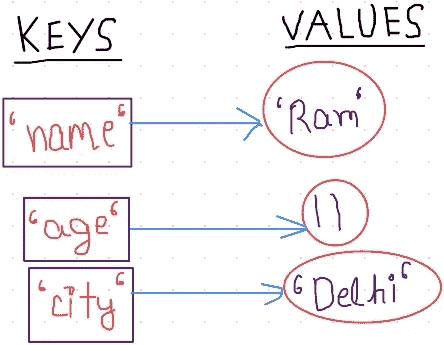 KEYS VALUES
‘name‘ ‘Ram‘
‘age‘ 11
‘city‘ ‘Delhi‘